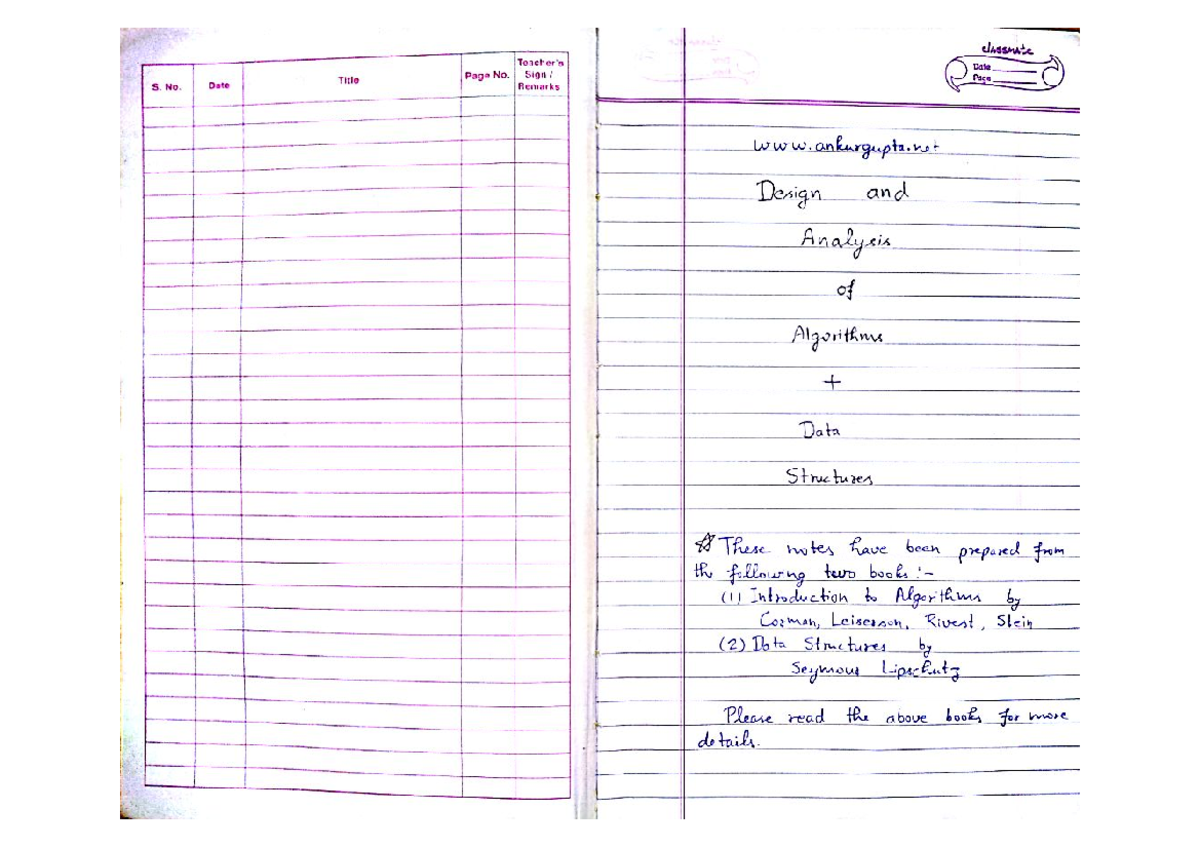 S. No.
Date
Title
Page No.
Teacher's
Sign /
Remarks
classmate
Date
Page
www.ankurgupta.net
Design and
Analysis
of
Algorithms
+
Data
Structures
These notes have been prepared from
the following two books :-
(1) Introduction to Algorithms by
Cormen, Leiserson, Rivest, Stein
(2) Data Structures by
Seymour Lipschutz
Please read the above books for more
details.